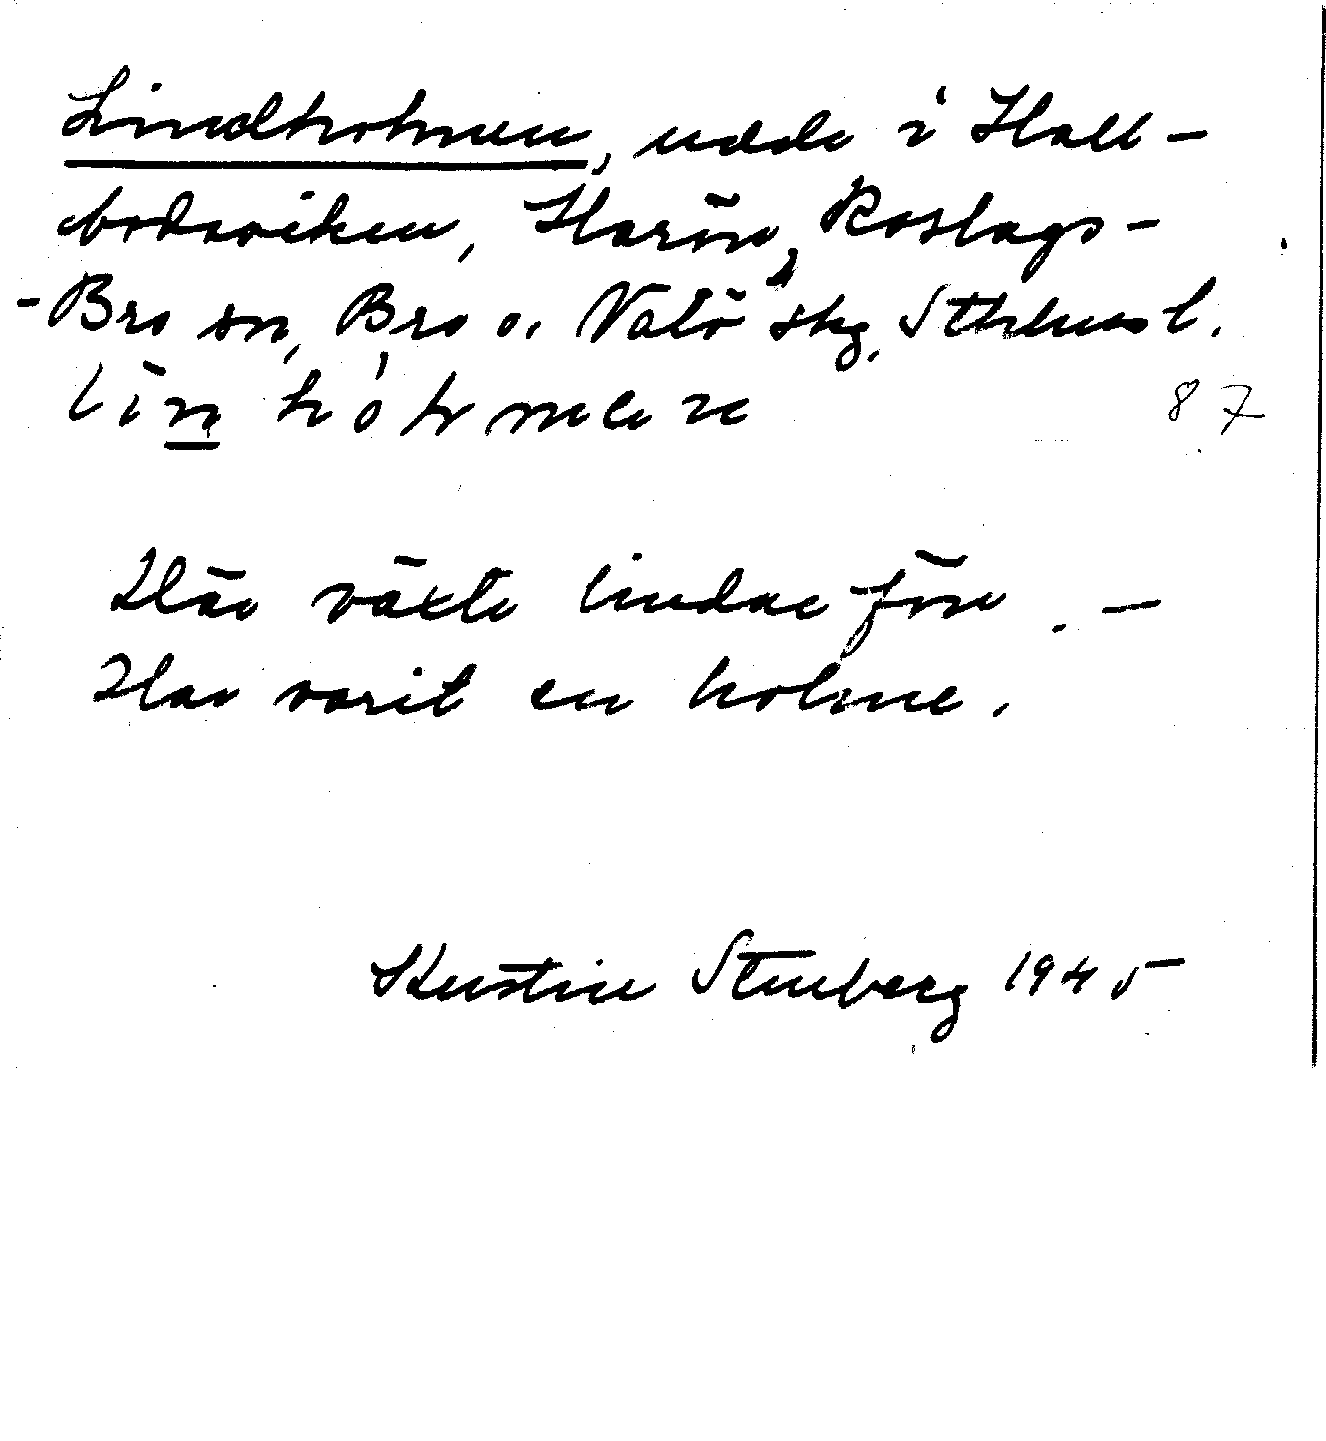 Lindholmen, udde i Hall-
bodaviken, Harön, Roslags-
-Bro sn, Bro o. Vätö skg, Sthlms l.
87
Här växte lindar förr. —
Har varit en holme.
Kerstin Stenberg 1945